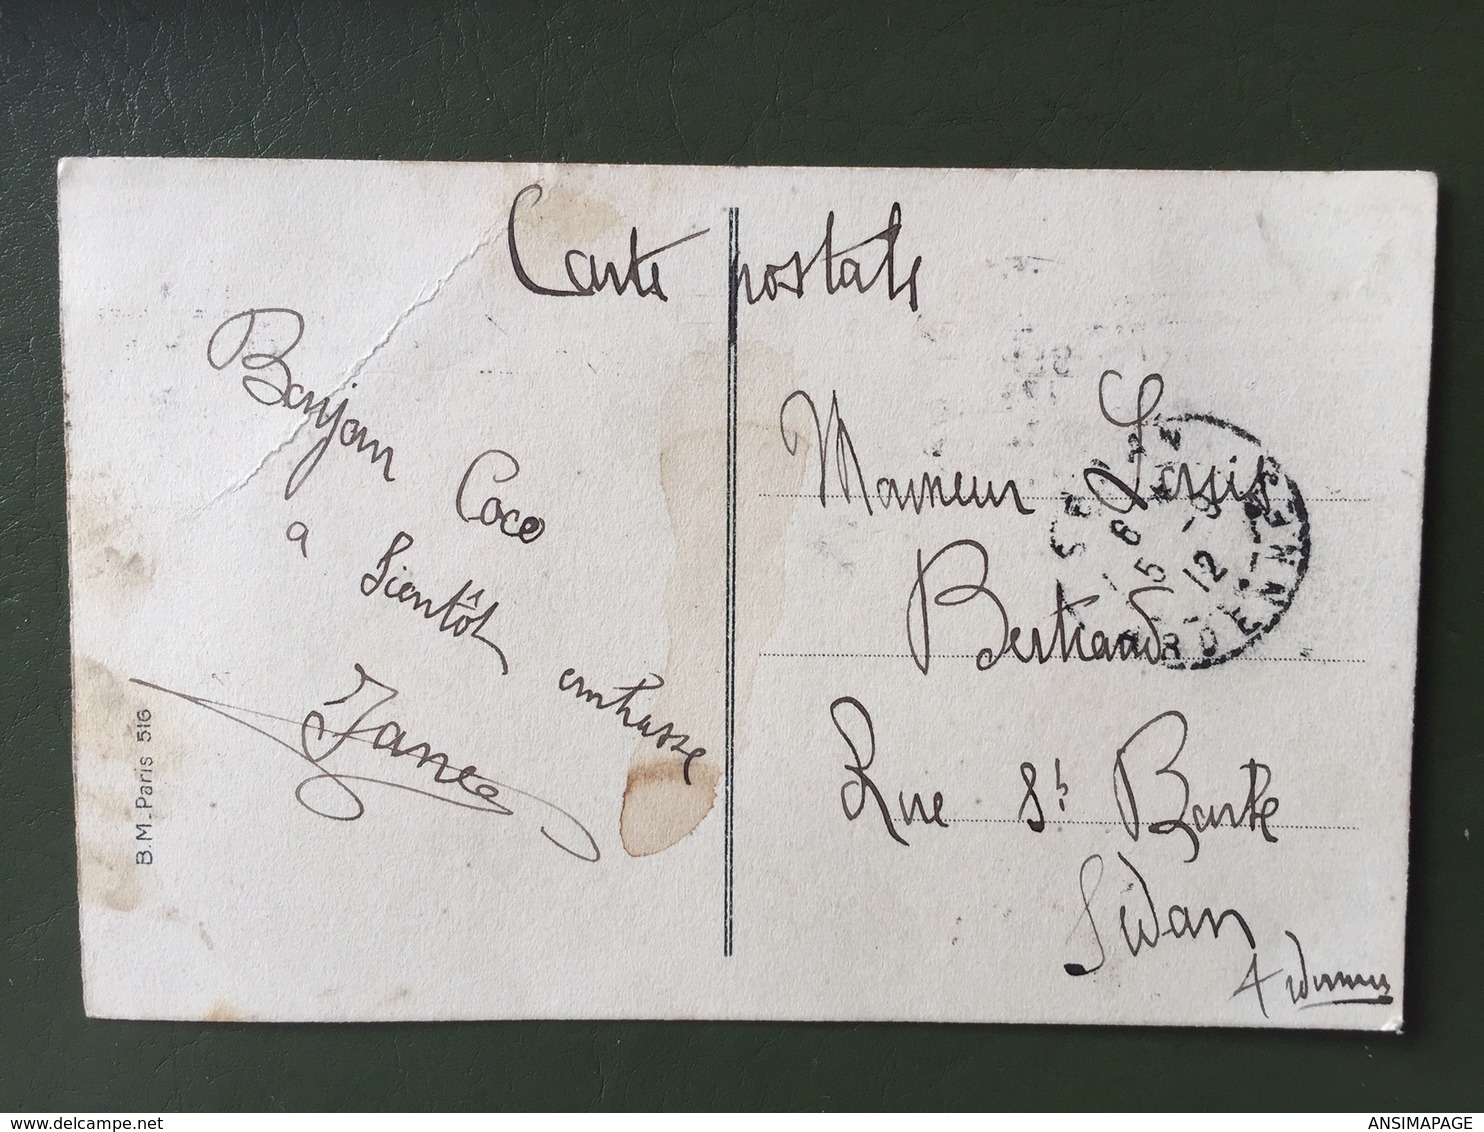 Carte postale
Bonjour Coco
a bientôt embrasse
Jane
B.M. Paris 516
Monsieur Louis
Bertrand
Rue St Barbe
Sedan
Ardennes
SEDAN
6
15 - 9
12
ARDENNES
www.delcampe.net
ANSIMAPAGE